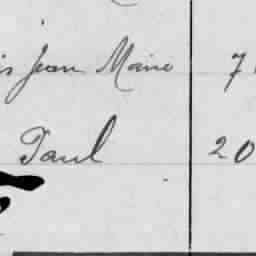 is Jean Marie 7
Paul 20